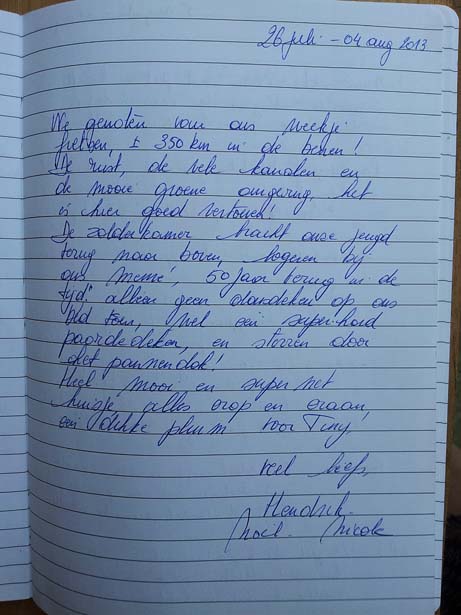 26 juli - 04 aug 2013
We genoten van ons weekje
fietsen, ± 350 km in de benen!
De rust, de vele kanalen en
de mooie groene omgeving, het
is hier goed vertoeven!
De zolderkamer bracht onze jeugd
terug naar boven, logeren bij
ons memé, 50 jaar terug in de
tijd: alleen geen donsdeken op ons
bed toen, wel een super-hard
paardedeken, en sterren door
het pannendak!
Heel mooi en super net
huisje, alles erop en eraan,
een dikke pluim voor Tiny
veel liefs,
Hendrik
Noël Nicole